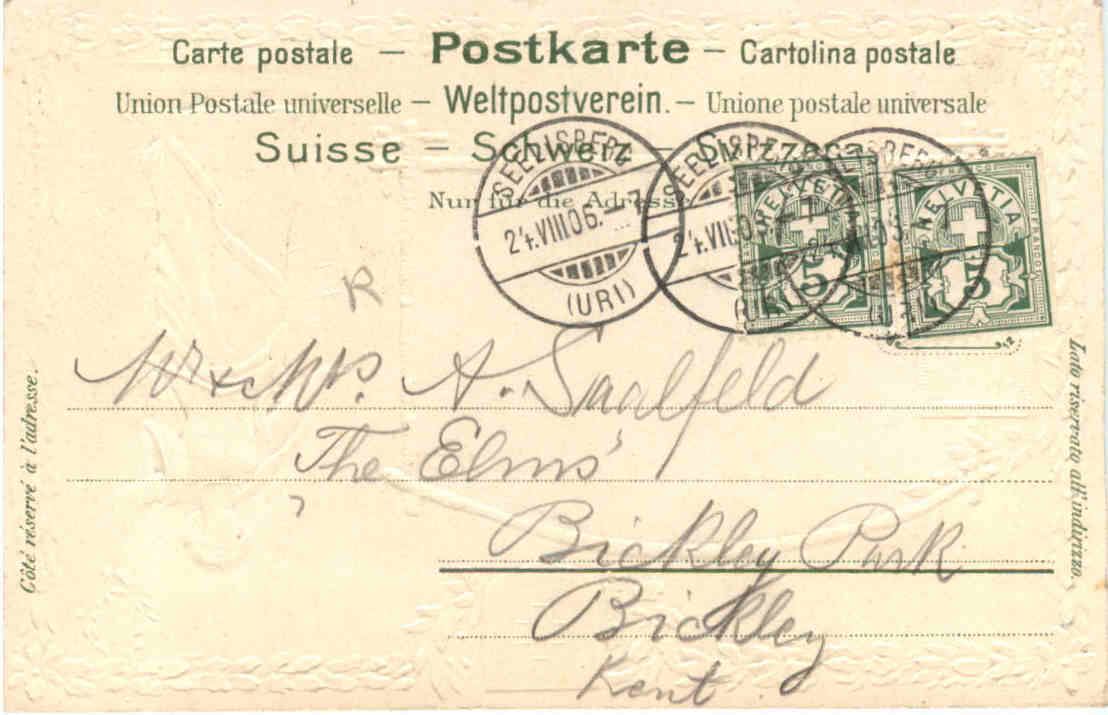 Carte postale — Postkarte — Cartolina postale
Union Postale universelle — Weltpostverein. — Unione postale universale
Suisse — Schweiz — Svizzera
Nur für die Adresse
SEELISBERG
24.VIII 06. — 7
(URI)
SEELISBERG
24.VIII 06. — 7
(URI)
HELVETIA
5
HELVETIA
5
FRANCO
R
Mr & Mrs. A. Saalfeld
'The Elms'
Bickley Park
Bickley
Kent.
Côté réservé à l'adresse.
Lato riservato all'indirizzo.